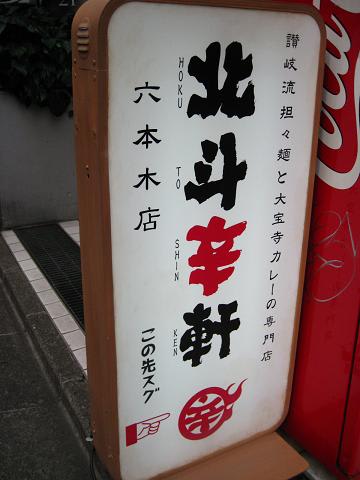 讃岐流担々麺と大宝寺カレーの専門店
北斗辛軒
HOKU TO SHIN KEN
六本木店
この先スグ
辛